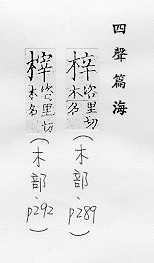 四聲篇海
梓咨里切木名（木部、p289）
榟咨里切木名（木部、p292）